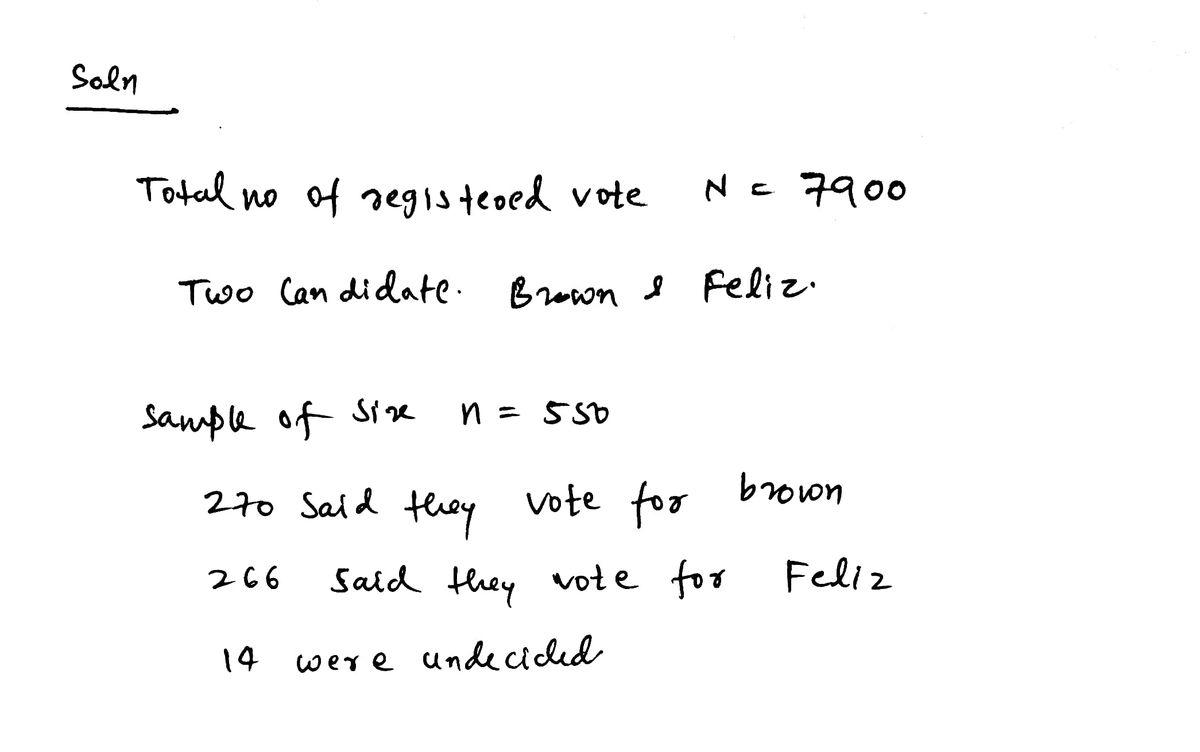 Soln
Total no of registered vote N = 7900
Two Candidate. Brown & Feliz.
Sample of size n = 550
270 Said they vote for brown
266 Said they vote for Feliz
14 were undecided